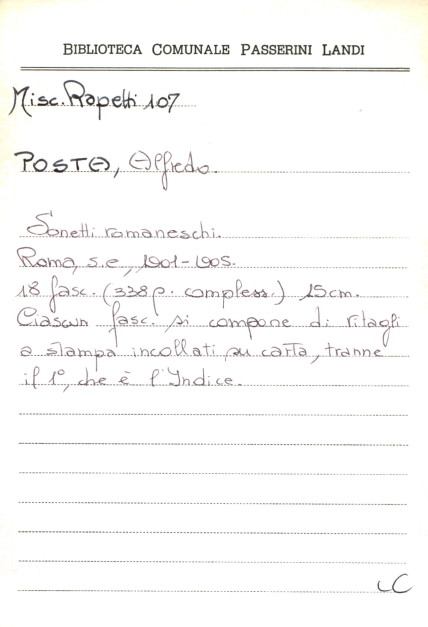 BIBLIOTECA COMUNALE PASSERINI LANDI
Misc. Rapetti 107
POSTA, Alfredo.
Sonetti romaneschi.
Roma, s.e., 1901-1905.
18 fasc. (338 p. compless.) 15cm.
Ciascun fasc. si compone di ritagli
a stampa incollati su carta, tranne
il 1°, che è l'Indice.
LC